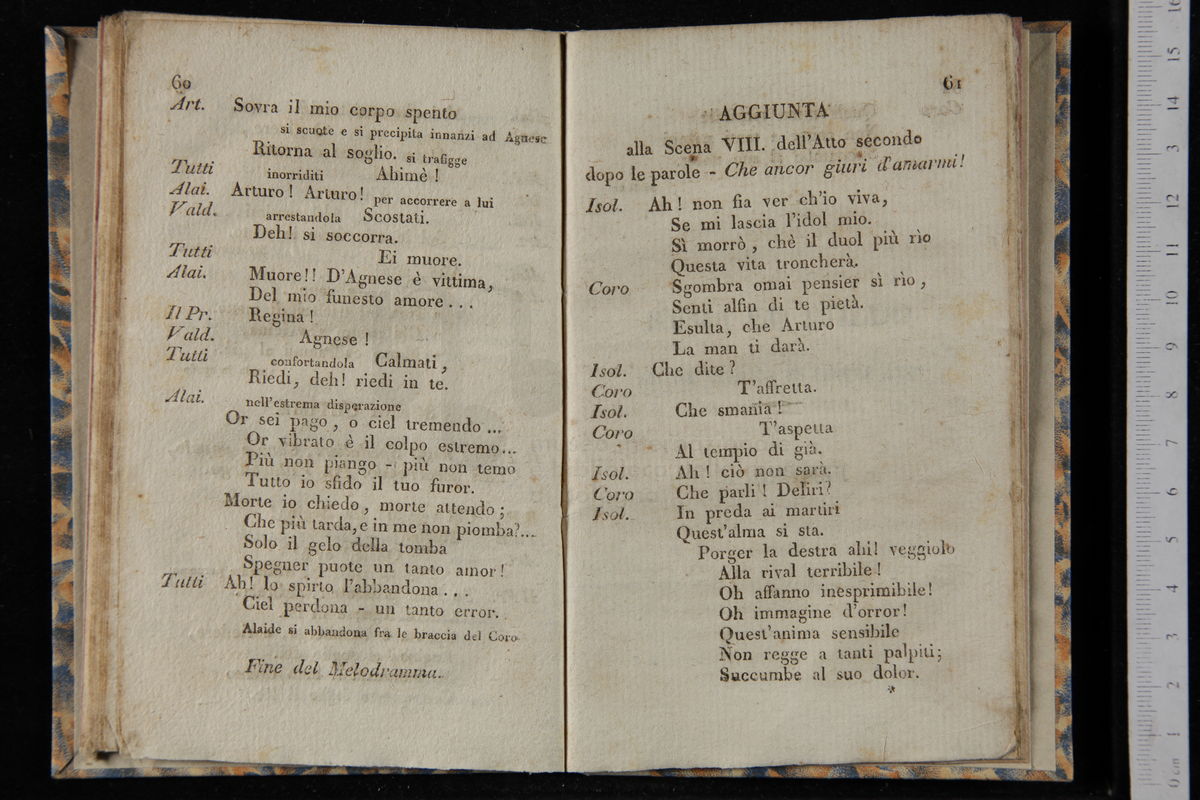 60
Art. Sovra il mio corpo spento
si scuote e si precipita innanzi ad Agnese
Ritorna al soglio. si trafigge
Tutti inorriditi Ahimè !
Alai. Arturo ! Arturo ! per accorrere a lui
Vald. arrestandola Scostati.
Deh! si soccorra.
Tutti Ei muore.
Alai. Muore!! D'Agnese è vittima,
Del mio funesto amore . . .
Il Pr. Regina !
Vald. Agnese !
Tutti confortandola Calmati ,
Riedi, deh! riedi in te.
Alai. nell'estrema disperazione
Or sei pago , o ciel tremendo ...
Or vibrato è il colpo estremo...
Più non piango - più non temo
Tutto io sfido il tuo furor.
Morte io chiedo , morte attendo ;
Che più tarda, e in me non piomba?...
Solo il gelo della tomba
Spegner puote un tanto amor !
Tutti Ah! lo spirto l'abbandona . . .
Ciel perdona - un tanto error.
Alaide si abbandona fra le braccia del Coro
Fine del Melodramma.
61
AGGIUNTA
alla Scena VIII. dell'Atto secondo
dopo le parole - Che ancor giuri d'amarmi!
Isol. Ah ! non fia ver ch'io viva,
Se mi lascia l'idol mio.
Sì morrò , chè il duol più rio
Questa vita troncherà.
Coro Sgombra omai pensier sì rio ,
Senti alfin di te pietà.
Esulta, che Arturo
La man ti darà.
Isol. Che dite ?
Coro T'affretta.
Isol. Che smania !
Coro T'aspetta
Al tempio di già.
Isol. Ah ! ciò non sarà.
Coro Che parli ! Deliri?
Isol. In preda ai martiri
Quest'alma si sta.
Porger la destra ahi! veggiolo
Alla rival terribile !
Oh affanno inesprimibile!
Oh immagine d'orror!
Quest'anima sensibile
Non regge a tanti palpiti;
Succumbe al suo dolor.
*
0 cm 1 2 3 4 5 6 7 8 9 10 11 12 13 14 15 16